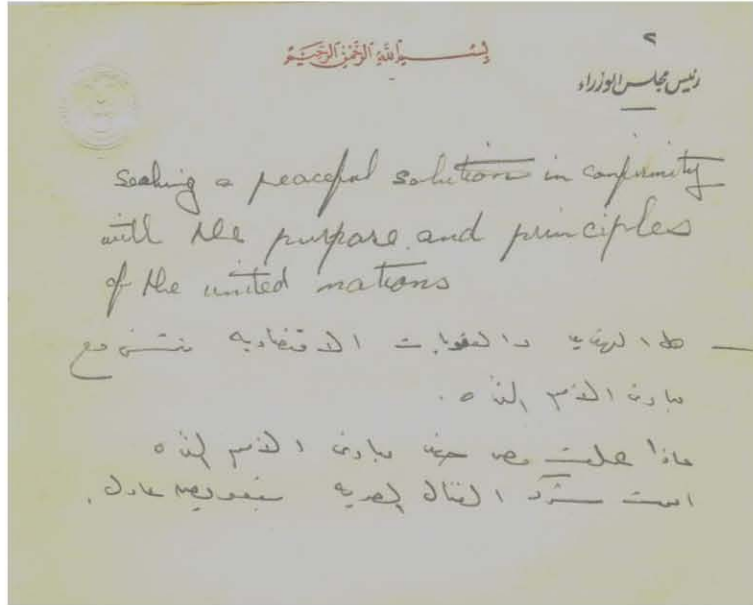 ٢
بسم الله الرحمن الرحيم
رئيس مجلس الوزراء
seeking a peaceful solution in confirmity
with the purpose and principles
of the united nations
هل التهديد والعقوبات الاقتصادية تتمشى مع
مبادئ الأمم المتحدة.
ماذا عملت مصر ضد مبادئ الأمم المتحدة
أممت شركة القنال المصرية بتعويض عادل.